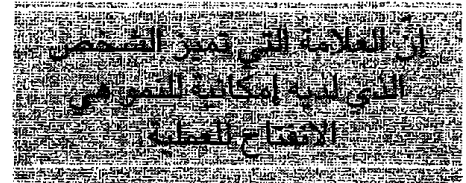 إنّ العلامة التي تميز الشخص
الذي لديه إمكانية للنمو هي
الانفتاح للعطية.